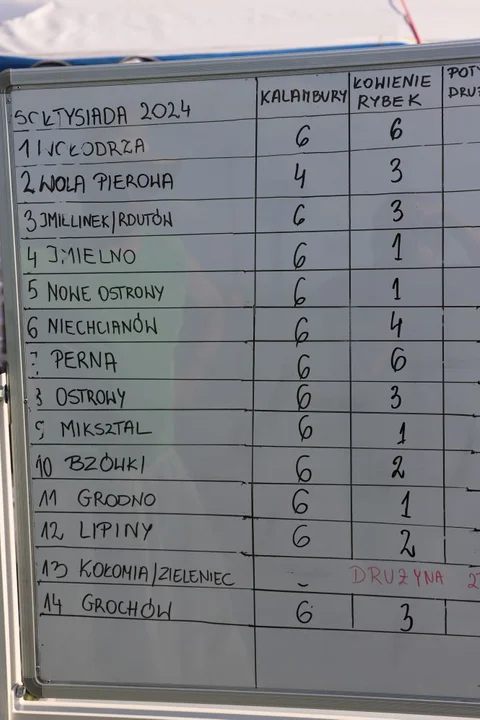 SOŁTYSIADA 2024 KALAMBURY ŁOWIENIE RYBEK
1 6 6
2 WOLA PIEROWA 4 3
3 IMILLINEK/RDUTÓW 6 3
4 IMIELNO 6 1
5 NOWE OSTROWY 6 1
6 NIECHCIANÓW 6 4
7 PERNA 6 6
8 OSTROWY 6 3
9 MIKSZTAL 6 1
10 BZÓWKI 6 2
11 GRODNO 6 1
12 LIPINY 6 2
13 KOŁOMIA/ZIELENIEC - DRUŻYNA
14 GROCHÓW 6 3